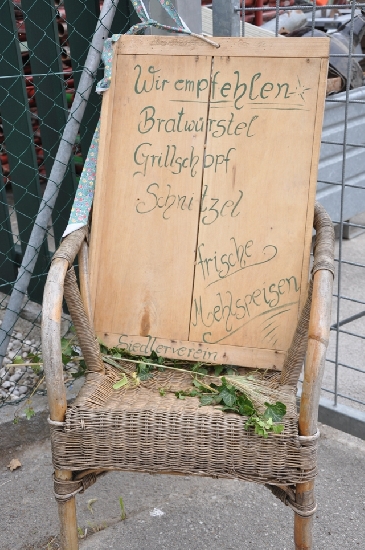 Wir empfehlen
Bratwürstel
Grillschopf
Schnitzel
frische
Mehlspeisen
Siedlerverein